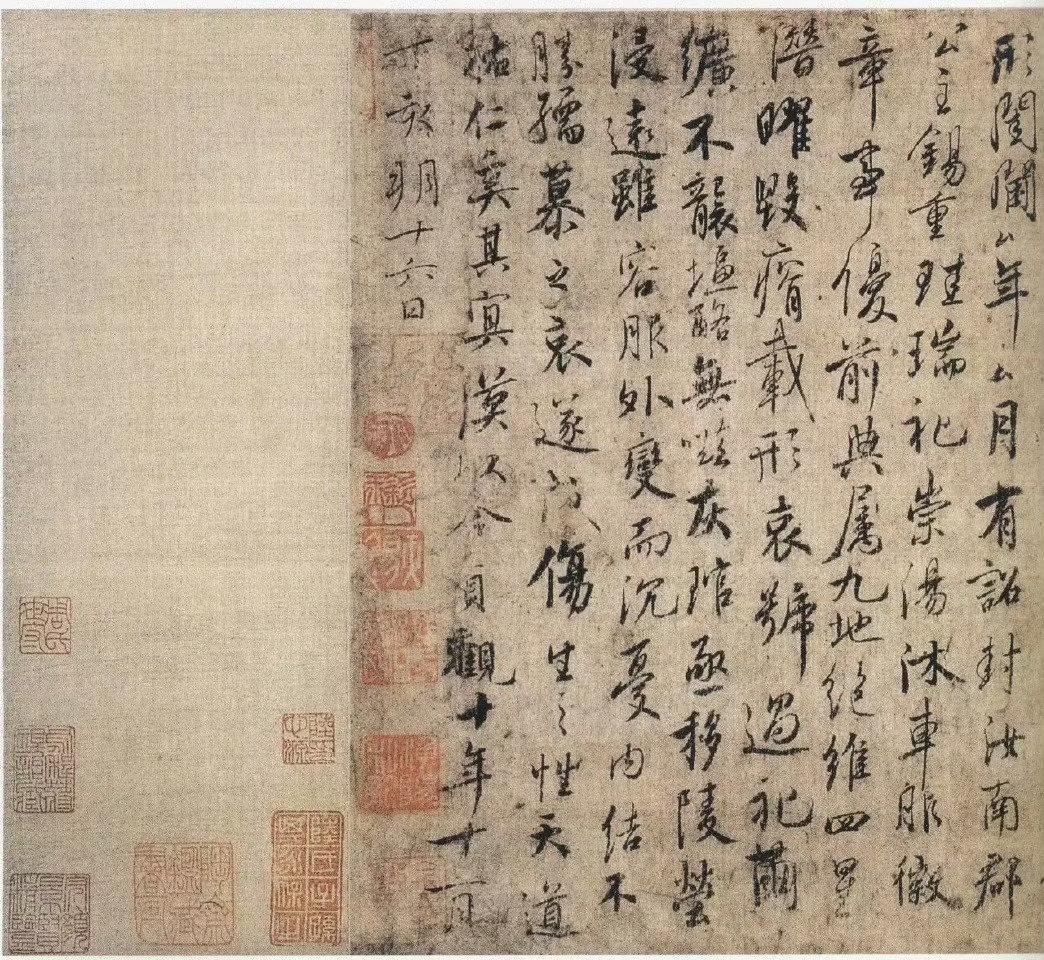 形閨閫厶年厶月有詔封汝南郡
公主錫重珪瑞礼崇湯沐車服徽
章事優前典属九地絕維四星
潛曜毀瘠載形哀號過礼繭
纊不襲塩酪無嗞灰琯亟移陵塋
浸遠雖容服外變而沉憂內結不
勝孺慕之哀遂成傷生之性天道
祐仁奚其冥漠以今貞觀十年十一月
丁亥朔十六日